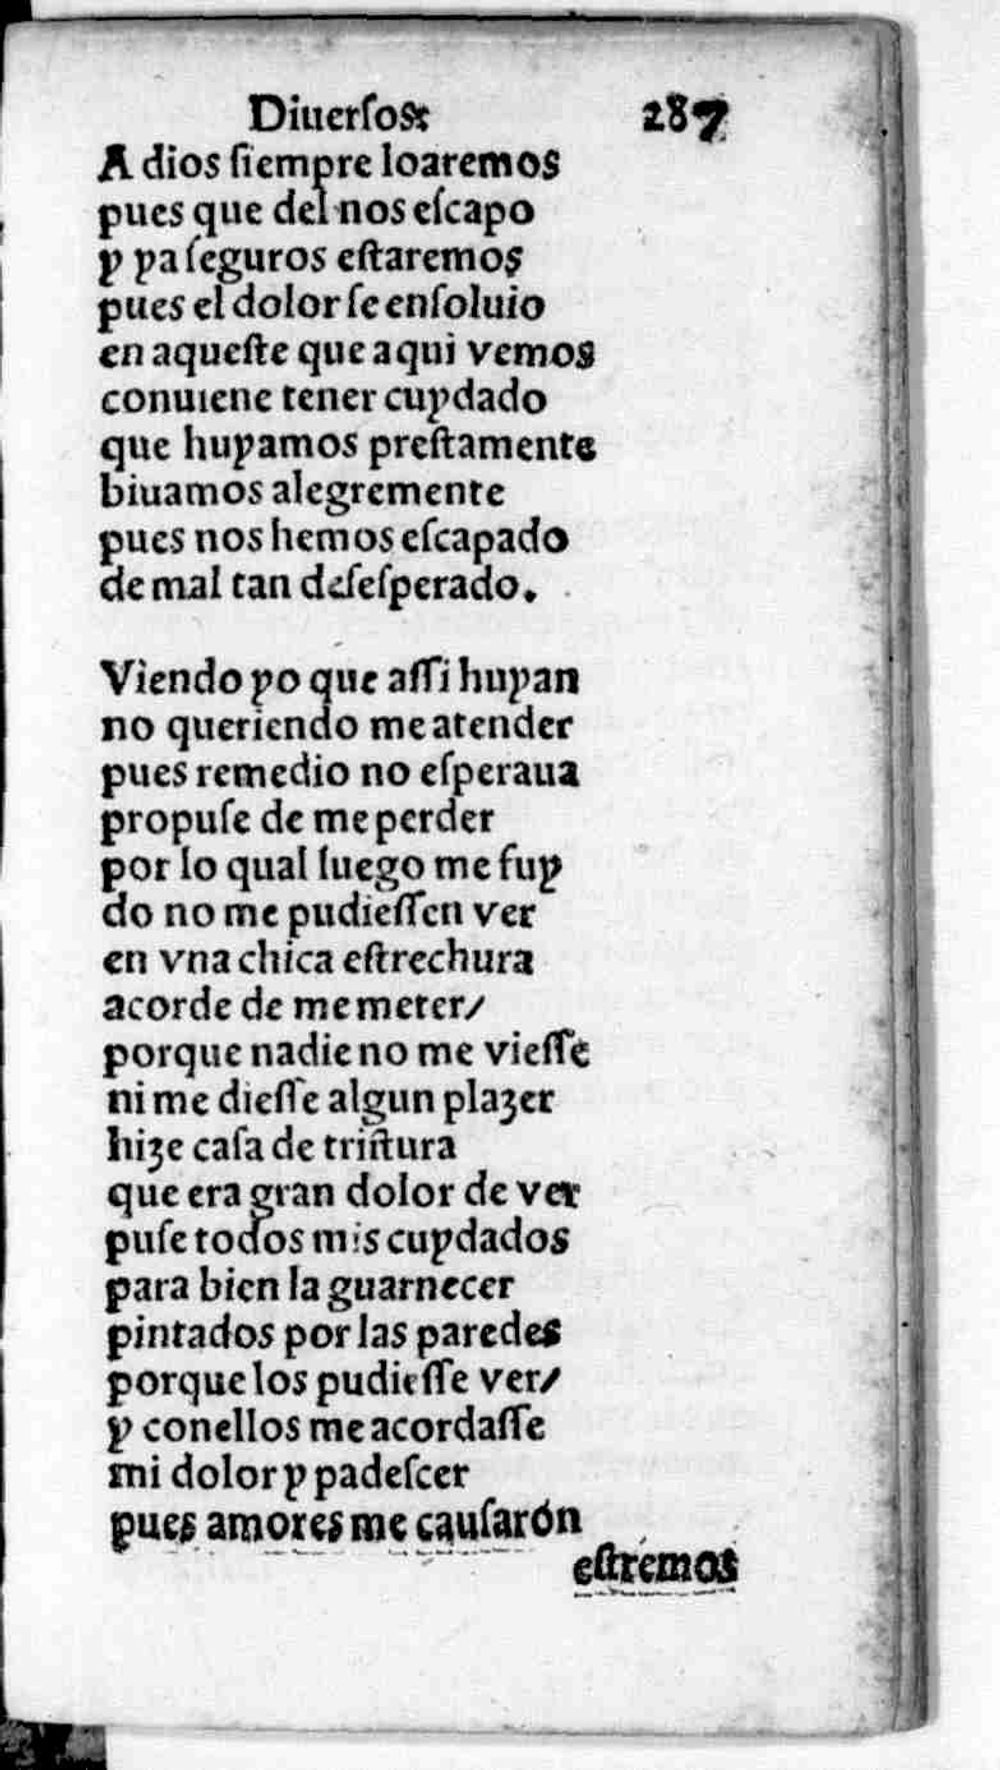 Diuerſos: 287
A dios ſiempre loaremos
pues que del nos eſcapo
y ya ſeguros eſtaremos
pues el dolor ſe enſoluio
en aqueſte que aqui vemos
conuiene tener cuydado
que huyamos preſtamente
biuamos alegremente
pues nos hemos eſcapado
de mal tan deſeſperado.
Viendo yo que aſſi huyan
no queriendo me atender
pues remedio no eſperaua
propuſe de me perder
por lo qual luego me fuy
do no me pudieſſen ver
en vna chica eſtrechura
acorde de me meter/
porque nadie no me vieſſe
ni me dieſſe algun plazer
hize caſa de triſtura
que era gran dolor de ver
puſe todos mis cuydados
para bien la guarnecer
pintados por las paredes
porque los pudieſſe ver/
y conellos me acordaſſe
mi dolor y padeſcer
pues amores me cauſarón
eſtremos